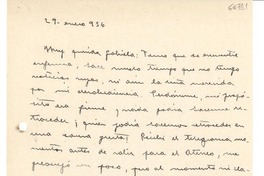 29. enero 936
Muy querida Gabriela: Temo que se encuentre
enferma; hace mucho tiempo que no tengo
noticias suyas, ni aún la riña merecida
por mi desobediencia. Perdóneme, mi propó-
sito era firme, nada podía hacerme re-
troceder; quien podría hacernos retroceder en
una guerra? Recibí el telegrama mo-
mentos antes de salir para el Ateneo, me
preocupó un poco, pero al momento mi cla-